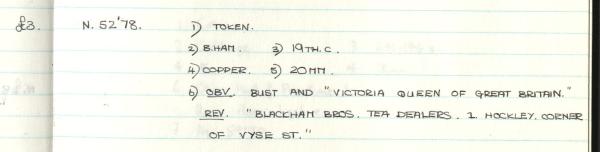 £3. N. 52'78. 1) TOKEN.
2) B.HAM. 3) 19TH.C.
4) COPPER. 5) 20MM.
6) OBV. BUST AND "VICTORIA QUEEN OF GREAT BRITAIN."
REV. "BLACKHAM BROS. TEA DEALERS. 1 HOCKLEY. CORNER
OF VYSE ST."